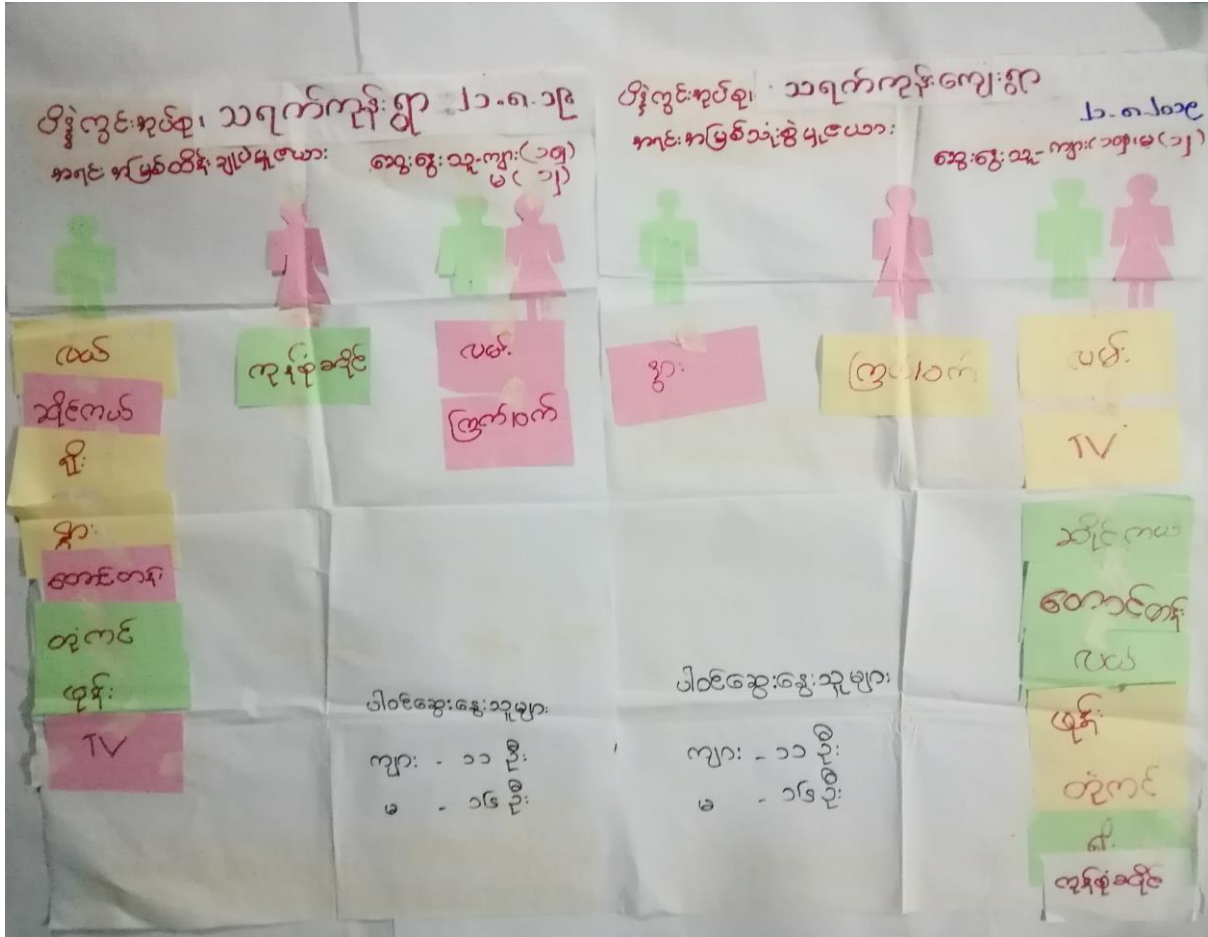 ပိန္နဲကွင်းအုပ်စု၊ သရက်ကုန်းရွာ ၂၁.၈.၁၉
အရင်းအမြစ်ထိန်းချုပ်မှုဇယား
ဆွေးနွေးသူ-ကျား(၁၅)
မ(၁၂)
လယ်
ဆိုင်ကယ်
မျိုး
နွား
တောင်တန်း
တုံကင်
ဖုန်း
TV
ကုန်စုံဆိုင်
လမ်း
ကြက်/ဝက်
ပါဝင်ဆွေးနွေးသူများ
ကျား - ၁၁ ဦး
မ - ၁၆ ဦး
ပိန္နဲကွင်းအုပ်စု၊ သရက်ကုန်းကျေးရွာ
၂၁.၈.၂၀၁၉
အရင်းအမြစ်သုံးစွဲမှုဇယား
ဆွေးနွေးသူ-ကျား(၁၅)၊မ(၁၂)
နွား
ကြက်/ဝက်
လမ်း
TV
ဆိုင်ကယ်
တောင်တန်း
လယ်
ဖုန်း
တုံကင်
ကုန်စုံဆိုင်
ပါဝင်ဆွေးနွေးသူများ
ကျား - ၁၁ ဦး
မ - ၁၆ ဦး